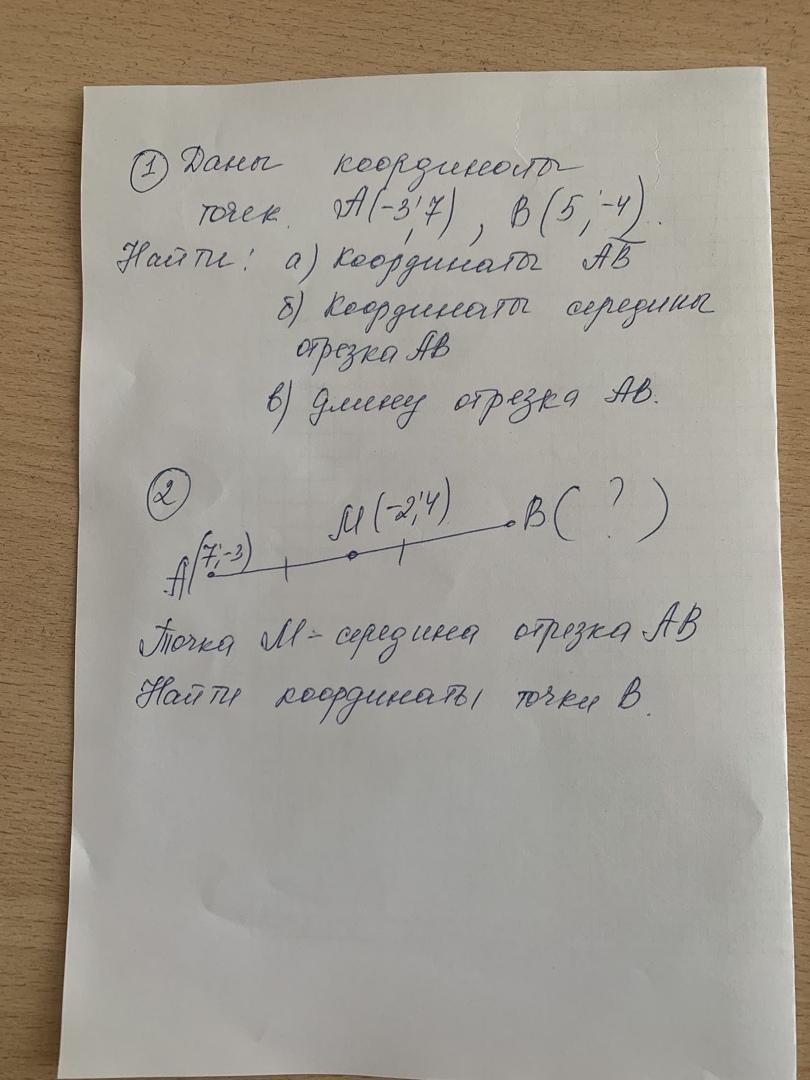 ① Даны координаты
точек. A(-3;7), B(5;-4).
Найти: а) Координаты A̅B̅
б) Координаты середины
отрезка AB
в) длину отрезка AB.
②
M(-2;4) B( ? )
A(7;-3)
Точка M - середина отрезка AB
Найти координаты точки B.